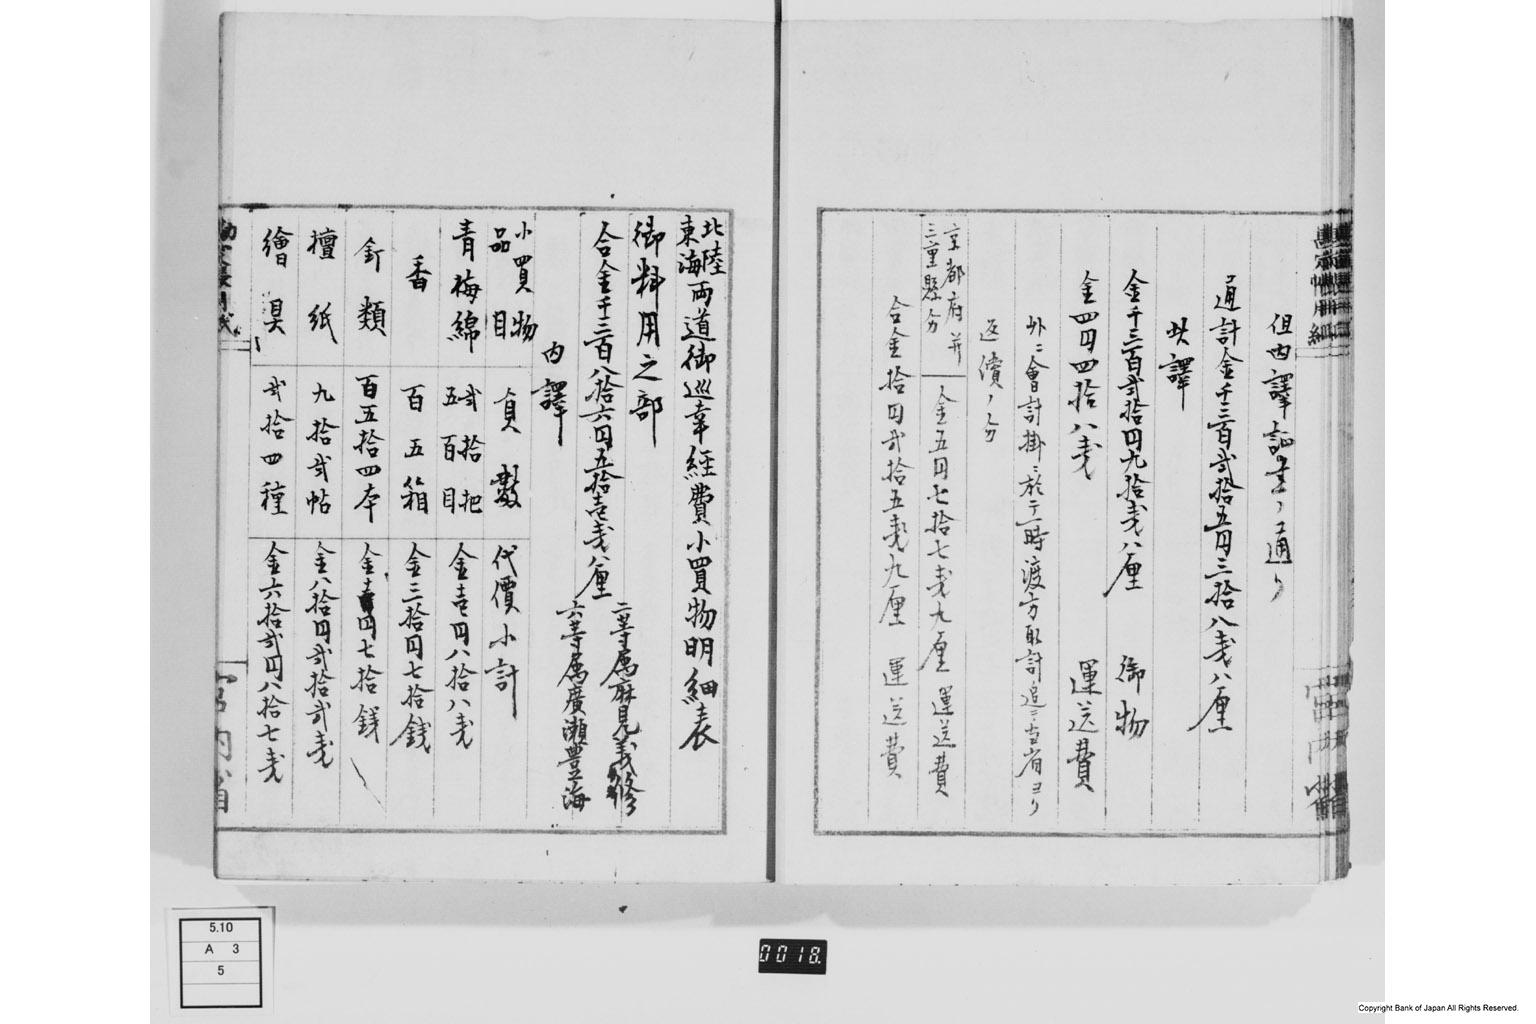 但内譯証書ノ通リ
通計金千三百弐拾五円三拾八戔八厘
此譯
金千三百弐拾四円九拾戔八厘 御物
金四円四拾八戔 運送費
外ニ會計掛ニ於テ一時渡方取計追テ本省ヨリ
返償ノ分
京都府并
三重縣分
金五円七拾七戔九厘 運送費
合金拾四円弐拾五戔九厘 運送費
北陸
東海
両道御巡幸經費小買物明細表
御料用之部
合金千三百八拾六円五拾壱戔八厘
二等属麻見義修
六等属廣瀬豊海
内譯
小買物
品目
員數
代價小計
青梅綿
弐拾把
五百目
金壱円八拾八戔
香
百五箱
金三拾円七拾銭
釘類
百五拾四本
金壱円七拾銭
檀紙
九拾弐帖
金八拾円弐拾弐戔
繪具
弐拾四種
金六拾弐円八拾七戔
宮内省
5.10
A 3
5
0018.
Copyright Bank of Japan All Rights Reserved.